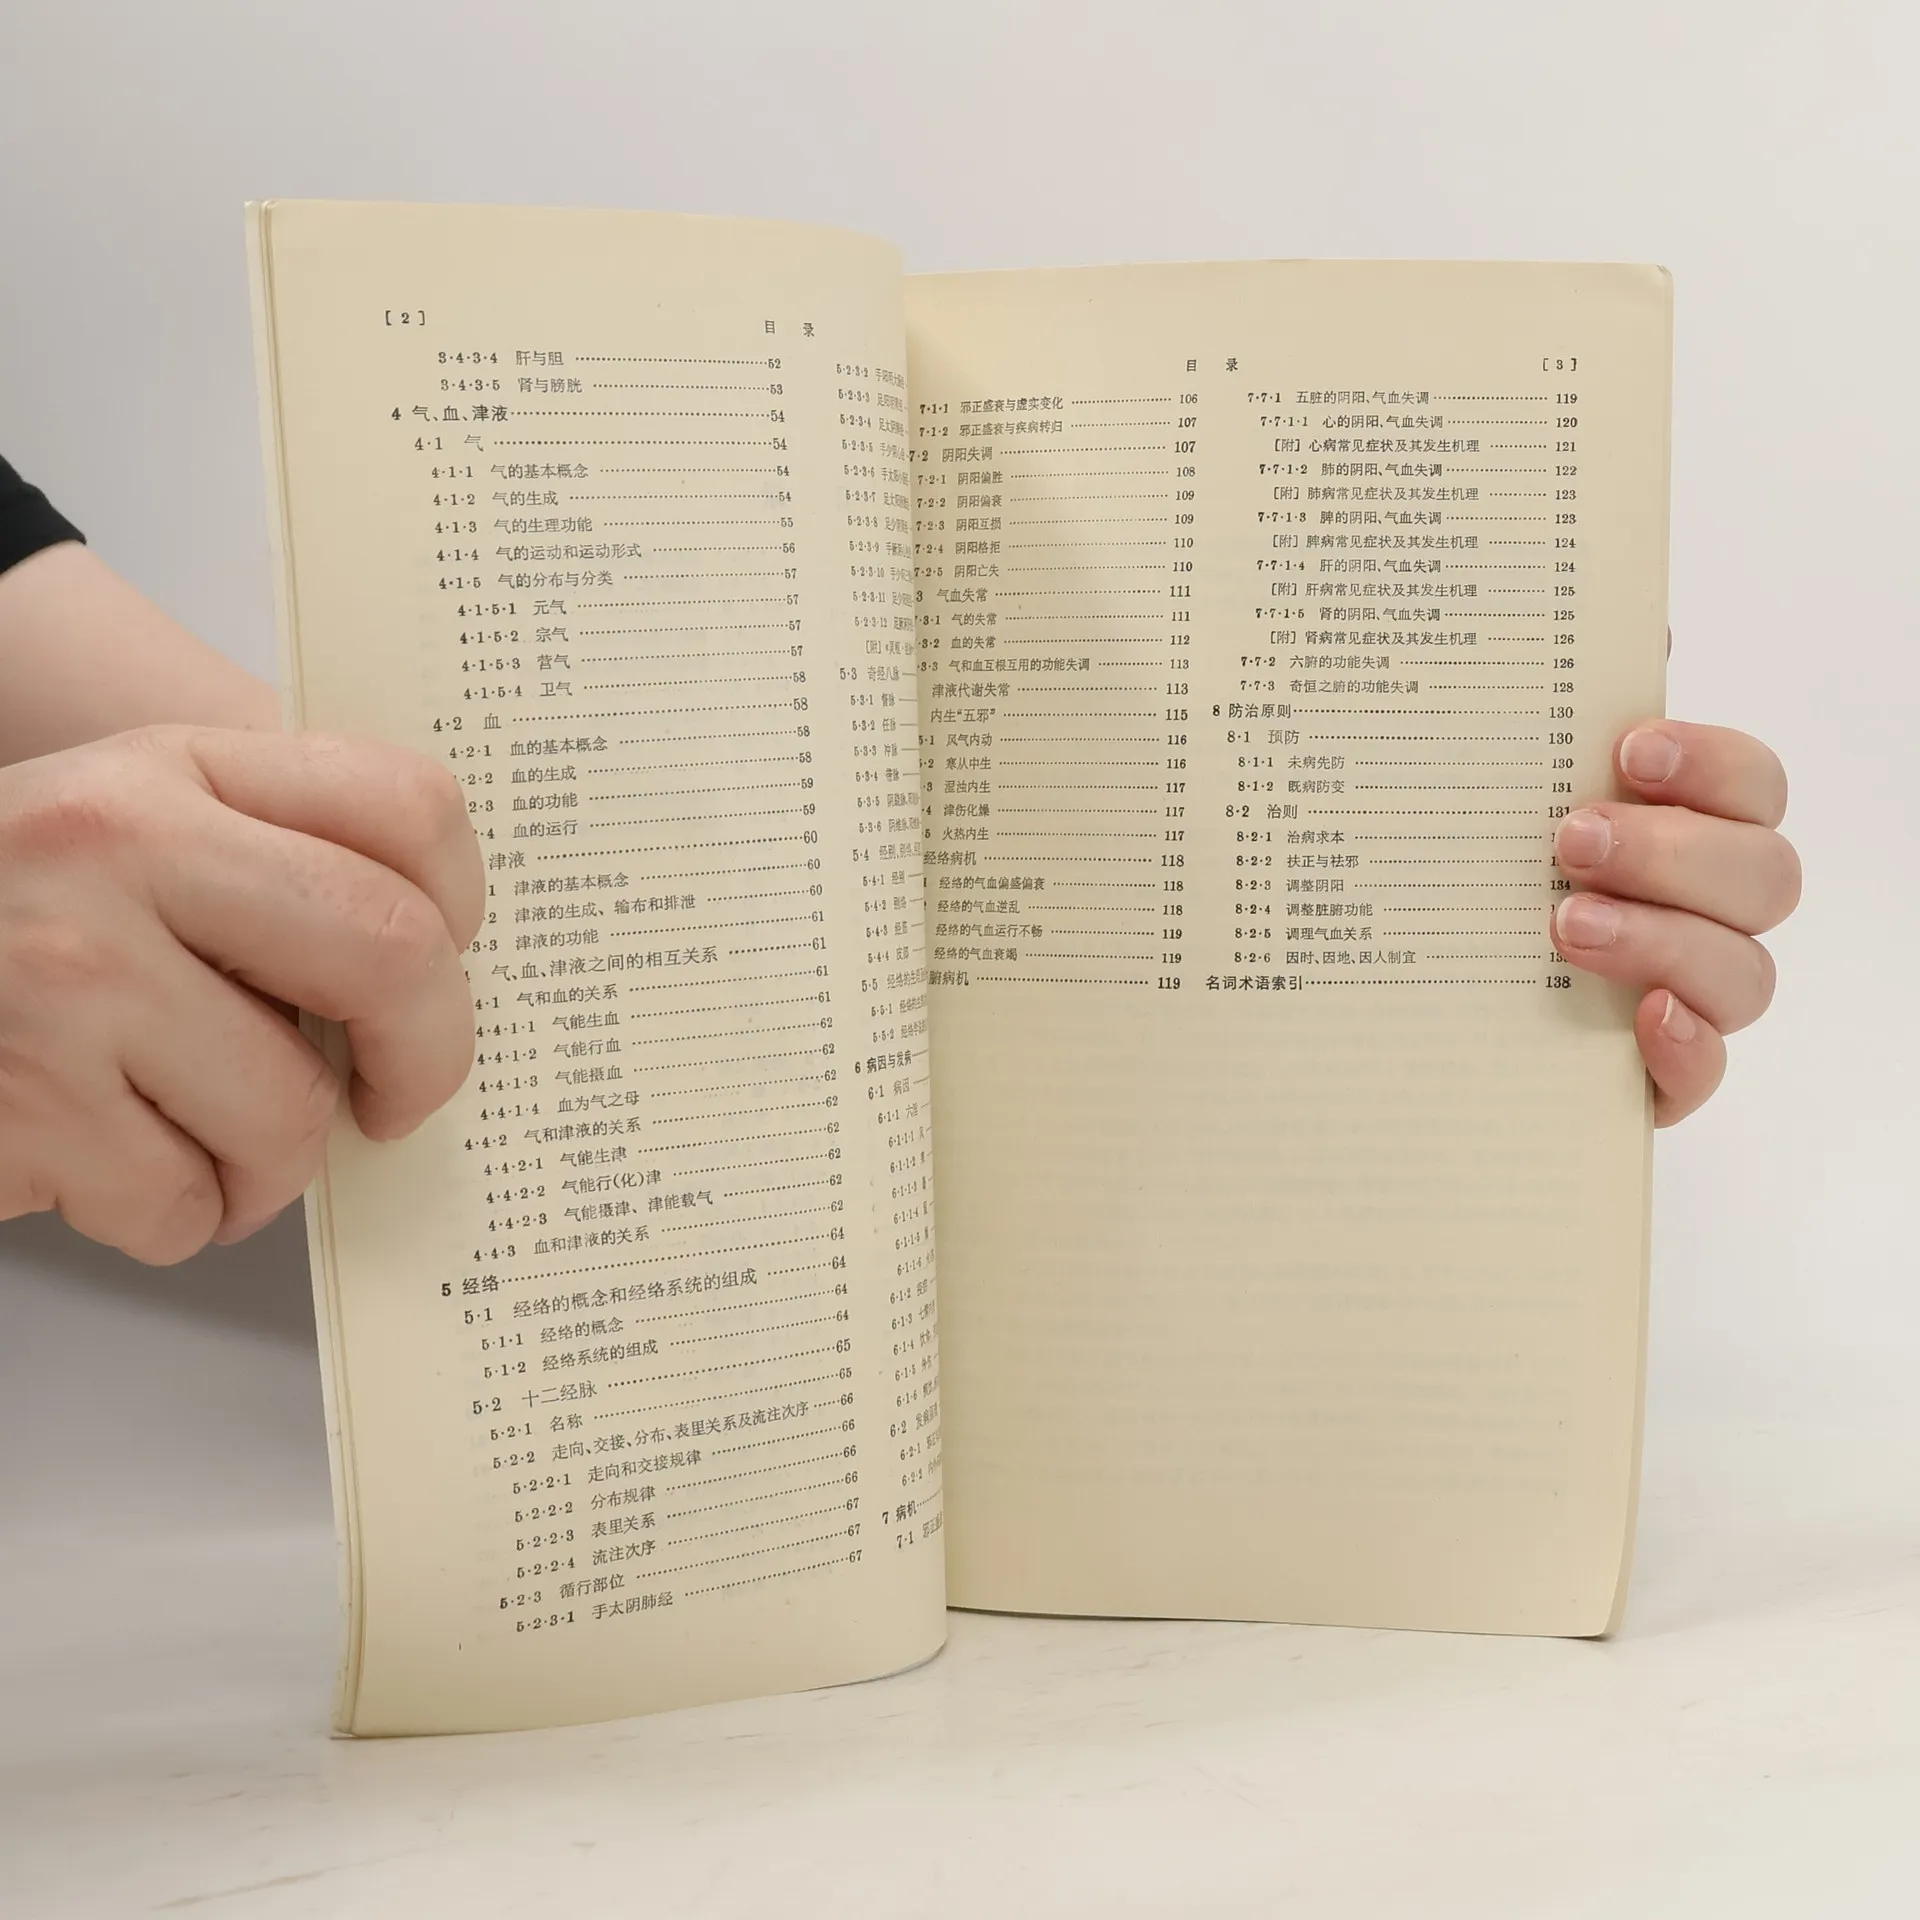 [ 2 ]
目 录
3·4·3·4 肝与胆 ……52
3·4·3·5 肾与膀胱 ……53
4 气、血、津液……54
4·1 气 ……54
4·1·1 气的基本概念 ……54
4·1·2 气的生成 ……54
4·1·3 气的生理功能 ……55
4·1·4 气的运动和运动形式 ……56
4·1·5 气的分布与分类 ……57
4·1·5·1 元气 ……57
4·1·5·2 宗气 ……57
4·1·5·3 营气 ……57
4·1·5·4 卫气 ……58
4·2 血 ……58
4·2·1 血的基本概念 ……58
·2·2 血的生成 ……58
2·3 血的功能 ……59
·4 血的运行 ……59
津液 ……60
1 津液的基本概念 ……60
·2 津液的生成、输布和排泄 ……60
·3·3 津液的功能 ……61
气、血、津液之间的相互关系 ……61
·4·1 气和血的关系 ……61
4·4·1·1 气能生血 ……61
4·4·1·2 气能行血 ……62
4·4·1·3 气能摄血 ……62
4·4·1·4 血为气之母 ……62
4·4·2 气和津液的关系 ……62
4·4·2·1 气能生津 ……62
4·4·2·2 气能行(化)津 ……62
4·4·2·3 气能摄津、津能载气 ……62
4·4·3 血和津液的关系 ……62
5 经络……64
5·1 经络的概念和经络系统的组成 ……64
5·1·1 经络的概念 ……64
5·1·2 经络系统的组成 ……64
5·2 十二经脉 ……65
5·2·1 名称 ……65
5·2·2 走向、交接、分布、表里关系及流注次序 ……66
5·2·2·1 走向和交接规律 ……66
5·2·2·2 分布规律 ……66
5·2·2·3 表里关系 ……66
5·2·2·4 流注次序 ……67
5·2·3 循行部位 ……67
5·2·3·1 手太阴肺经 ……67
5·2·3·2 手阳明大肠经
5·2·3·3
5·2·3·4
5·2·3·5 手少阴心经
5·2·3·6
5·2·3·7
5·2·3·8
5·2·3·9
5·2·3·10
5·2·3·11
5·2·3·12
[附]
5·3 奇经八脉
5·3·1 督脉
5·3·2 任脉
5·3·3 冲脉
5·3·4 带脉
5·3·5
5·3·6
5·4 经别、别络
5·4·1 经别
5·4·2 别络
5·4·3 经筋
5·4·4 皮部
5·5
5·5·1
5·5·2
6 病因与发病
6·1 病因
6·1·1
6·1·1·1 风
6·1·1·2
6·1·1·3
6·1·1·4
6·1·1·5
6·1·1·6
6·1·2
6·1·3
6·1·4
6·1·5
6·1·6
6·2
6·2·1
6·2·2
7 病机
7·1
目 录
[ 3 ]
7·1·1 邪正盛衰与虚实变化 ……106
7·1·2 邪正盛衰与疾病转归 ……107
7·2 阴阳失调 ……107
7·2·1 阴阳偏胜 ……108
7·2·2 阴阳偏衰 ……109
7·2·3 阴阳互损 ……109
7·2·4 阴阳格拒 ……110
7·2·5 阴阳亡失 ……110
3 气血失常 ……111
·3·1 气的失常 ……111
·3·2 血的失常 ……112
·3·3 气和血互根互用的功能失调 ……113
津液代谢失常 ……113
内生“五邪” ……115
5·1 风气内动 ……116
·2 寒从中生 ……116
·3 湿浊内生 ……117
·4 津伤化燥 ……117
5 火热内生 ……117
经络病机 ……118
经络的气血偏盛偏衰 ……118
经络的气血逆乱 ……118
经络的气血运行不畅 ……119
经络的气血衰竭 ……119
腑病机 ……119
7·7·1 五脏的阴阳、气血失调 ……119
7·7·1·1 心的阴阳、气血失调 ……120
[附] 心病常见症状及其发生机理 ……121
7·7·1·2 肺的阴阳、气血失调 ……122
[附] 肺病常见症状及其发生机理 ……123
7·7·1·3 脾的阴阳、气血失调 ……123
[附] 脾病常见症状及其发生机理 ……124
7·7·1·4 肝的阴阳、气血失调 ……124
[附] 肝病常见症状及其发生机理 ……125
7·7·1·5 肾的阴阳、气血失调 ……125
[附] 肾病常见症状及其发生机理 ……126
7·7·2 六腑的功能失调 ……126
7·7·3 奇恒之腑的功能失调 ……128
8 防治原则……130
8·1 预防 ……130
8·1·1 未病先防 ……130
8·1·2 既病防变 ……131
8·2 治则 ……131
8·2·1 治病求本 ……
8·2·2 扶正与祛邪 ……
8·2·3 调整阴阳 ……134
8·2·4 调整脏腑功能 ……
8·2·5 调理气血关系 ……
8·2·6 因时、因地、因人制宜 ……
名词术语索引……138